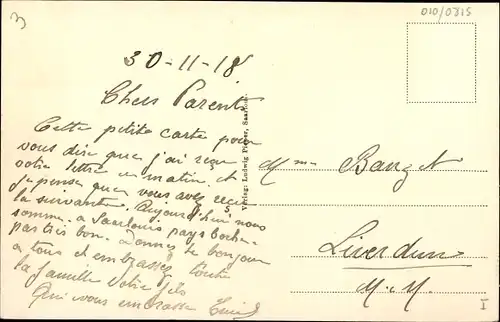 3
010/0315
30-11-18
Chers Parents
Cette petite carte pour
vous dire que j'ai reçu
votre lettre ce matin et
je pense que vous avez reçu
la suivante. Aujourd'hui nous
somme a Saarlouis pays boche
pas très bon. Donnez le bonjour
a tous et embrassez toute
la famille Votre fils
Qui vous embrasse
Verlag: Ludwig Saarlouis.
Mme Banzet
Liverdun
M. M.
I